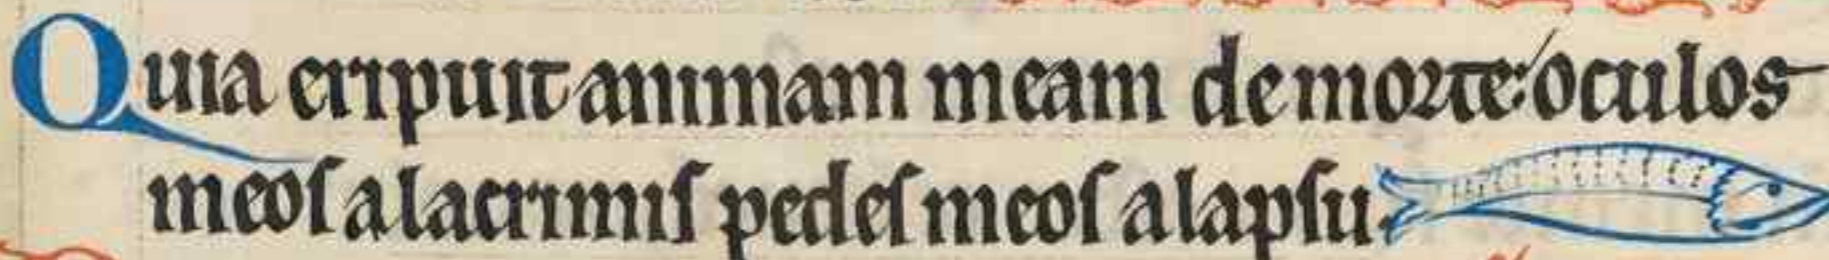 Quia eripuit animam meam de morte: oculos
meos a lacrimis pedes meos a lapsu.